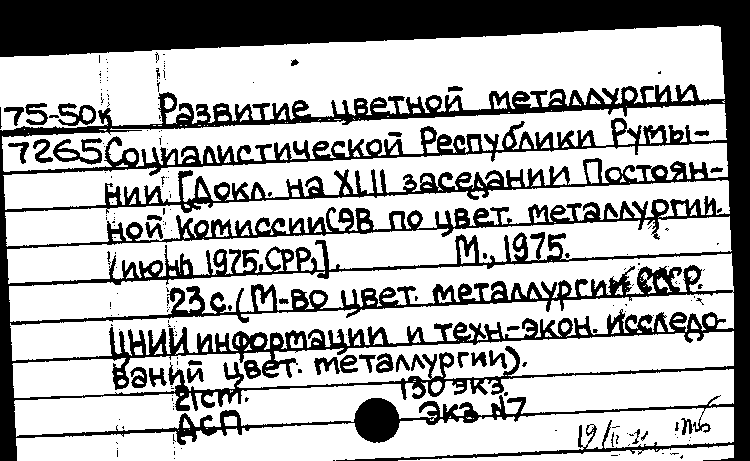 75-50к Развитие цветной металлургии
7265 Социалистической Республики Румы-
нии. [Докл. на XLII заседании Постоян-
ной Комиссии СЭВ по цвет. металлургии.
(июнь 1975, СРР,].  М., 1975.
23 с. (М-во цвет. металлургии СССР.
ЦНИИ информации и техн.-экон. исследо-
ваний цвет. металлургии).
21 см. 130 экз.
ДСП. Экз. №7